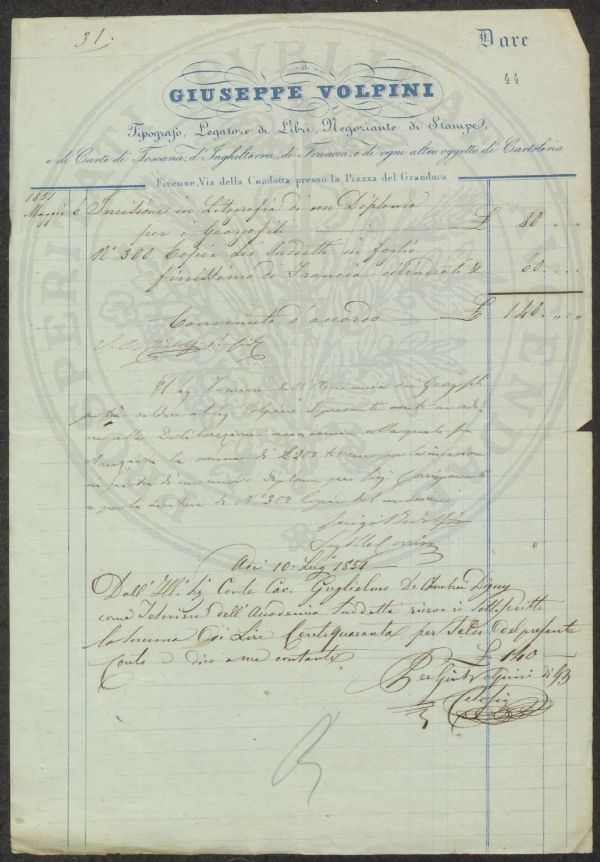 31.
Dare
44
a
GIUSEPPE VOLPINI
Tipografo, Legatore di Libri, Negoziante di Stampe,
e di Carte di Toscana, d'Inghilterra, di Francia, e di ogni altro oggetto di Cartoleria
Firenze, Via della Condotta presso la Piazza del Granduca
1851
Maggio 6 Incisione in Litografia di un Diploma
per i Georgofili £ 80
N° 300 Copie dei Suddetti in foglio
finissimo di Francia cilindrati £ 60
Convenuto d'accordo £ 140
Il Sig. Tesoriere dell'Accademia dei Georgofili
saldare al Sig. Volpini il presente conto in ordi-
ne alla Deliberazione accademica colla quale fu
la somma di £ 200 per la incisione
in pietra di un nuovo Diploma per Sig. Corrispondenti
e per la tiratura di N° 300 Copie del medesimo
Luigi Ridolfi
Seg. delle Corrisp.
Adì 10 Lugl. 1851
Dall'Ill. Sig. Conte Cav. Guglielmo De Cambrai Digny
come Tesoriere dell'Accademia suddetta ricevo io sottoscritto
la somma di Lire Centoquaranta per Saldo del presente
Conto e dico a me contanti £ 140
Per Volpini
PROSPERITATI PUBLICAE AUGENDAE